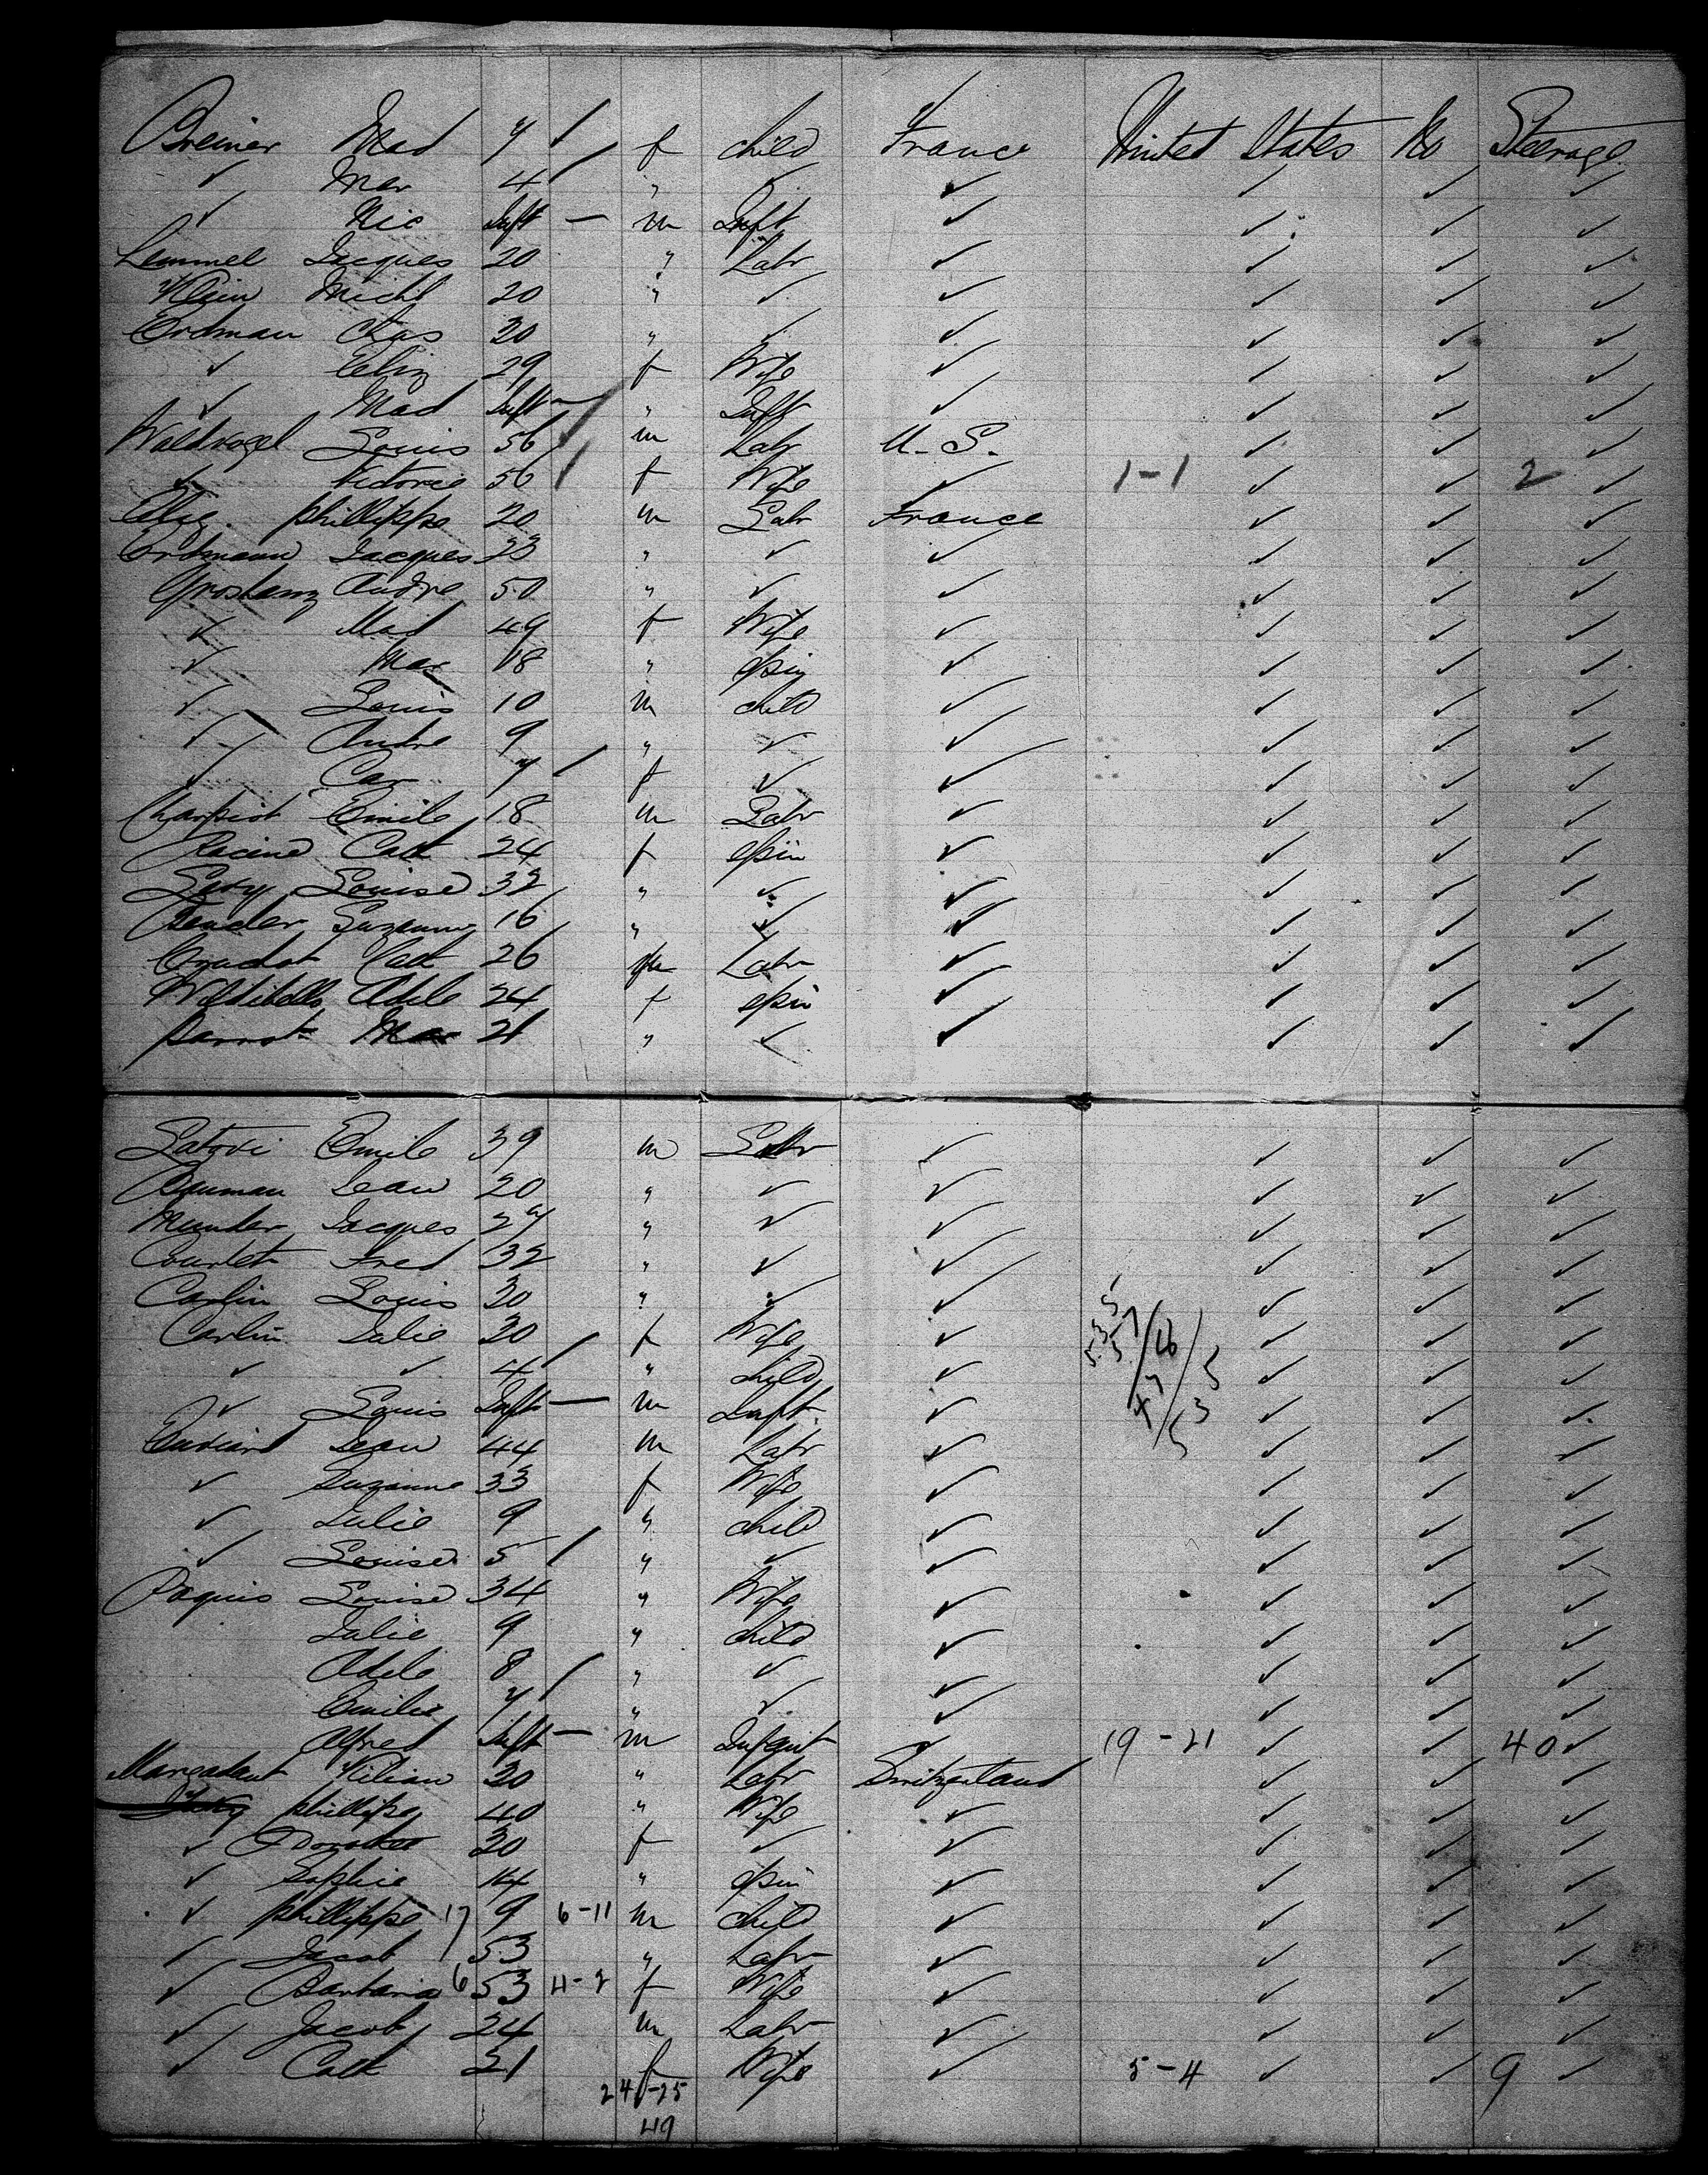 Breiner Mad 7 / f child France United States No Steerage
✓ Mar 4 / " ✓ ✓ ✓ ✓ ✓
✓ Nic Inft — m Inft ✓ ✓ ✓ ✓
Lemmel Jacques 20 " Labr ✓ ✓ ✓ ✓
Klein Michl 20 " ✓ ✓ ✓ ✓ ✓
Erdman Chas 30 " ✓ ✓ ✓ ✓ ✓
✓ Eliz 29 f Wife ✓ ✓ ✓ ✓
✓ Mad Inft — " Inft ✓ ✓ ✓ ✓
Waldvogel Louis 56 / m Labr U. S. ✓ ✓ ✓
✓ Victorie 56 / f Wife ✓ 1-1 ✓ ✓ 2 ✓
phillippe 20 m Labr France ✓ ✓ ✓
Erdmann Jacques 23 " ✓ ✓ ✓ ✓ ✓
Andre 50 " ✓ ✓ ✓ ✓ ✓
✓ Mad 49 f Wife ✓ ✓ ✓ ✓
✓ Mar 18 " spin ✓ ✓ ✓ ✓
✓ Louis 10 m child ✓ ✓ ✓ ✓
✓ Andre 9 " ✓ ✓ ✓ ✓ ✓
✓ Car 7 / f ✓ ✓ ✓ ✓ ✓
Charpiot Emile 18 m Labr ✓ ✓ ✓ ✓
Racine Cath 24 f spin ✓ ✓ ✓ ✓
Louise 32 " ✓ ✓ ✓ ✓ ✓
Bender Suzanne 16 " ✓ ✓ ✓ ✓ ✓
26 m Labr ✓ ✓ ✓ ✓
Adele 24 f spin ✓ ✓ ✓ ✓
Parrot Mar 21 " ✓ ✓ ✓ ✓ ✓
Emile 39 m Labr ✓ ✓ ✓ ✓
Bauman Jean 20 " ✓ ✓ ✓ ✓ ✓
Munder Jacques 27 " ✓ ✓ ✓ ✓ ✓
Courlet Fred 32 " ✓ ✓ ✓ ✓ ✓
Carlin Louis 30 " ✓ ✓ ✓ ✓ ✓
Carlin Julie 30 f Wife ✓ ✓ ✓ ✓
✓ ✓ 4 / " child ✓ ✓ ✓ ✓
✓ Louis Inft — m Inft. ✓ ✓ ✓ ✓
Jean 44 m Labr ✓ ✓ ✓ ✓
✓ Suzanne 33 f Wife ✓ ✓ ✓ ✓
✓ Julie 9 " child ✓ ✓ ✓ ✓
✓ Louise 5 / " ✓ ✓ ✓ ✓ ✓
Paquis Louise 34 " Wife ✓ ✓ ✓ ✓
Julie 9 " child ✓ ✓ ✓ ✓
Adele 8 / " ✓ ✓ ✓ ✓ ✓
Emilie 7 / " ✓ ✓ ✓ ✓ ✓
Alfred Inft — m Infant ✓ 19-21 ✓ ✓ 40 ✓
Margadant Kilian 30 " Labr Switzerland ✓ ✓ ✓
phillipe 40 " Wife ✓ ✓ ✓ ✓
✓ Dorothee 30 f ✓ ✓ ✓ ✓ ✓
✓ Sophie 14 " spin ✓ ✓ ✓ ✓
✓ phillippe 17 9 6-11 m child ✓ ✓ ✓ ✓
✓ Jacob 53 " Labr ✓ ✓ ✓ ✓
✓ Barbara 6 53 11-2 f Wife ✓ ✓ ✓ ✓
✓ Jacob 24 m Labr ✓ ✓ ✓ ✓
✓ Cath 21 f Wife ✓ 5-4 ✓ ✓ 9 ✓
24-25
49